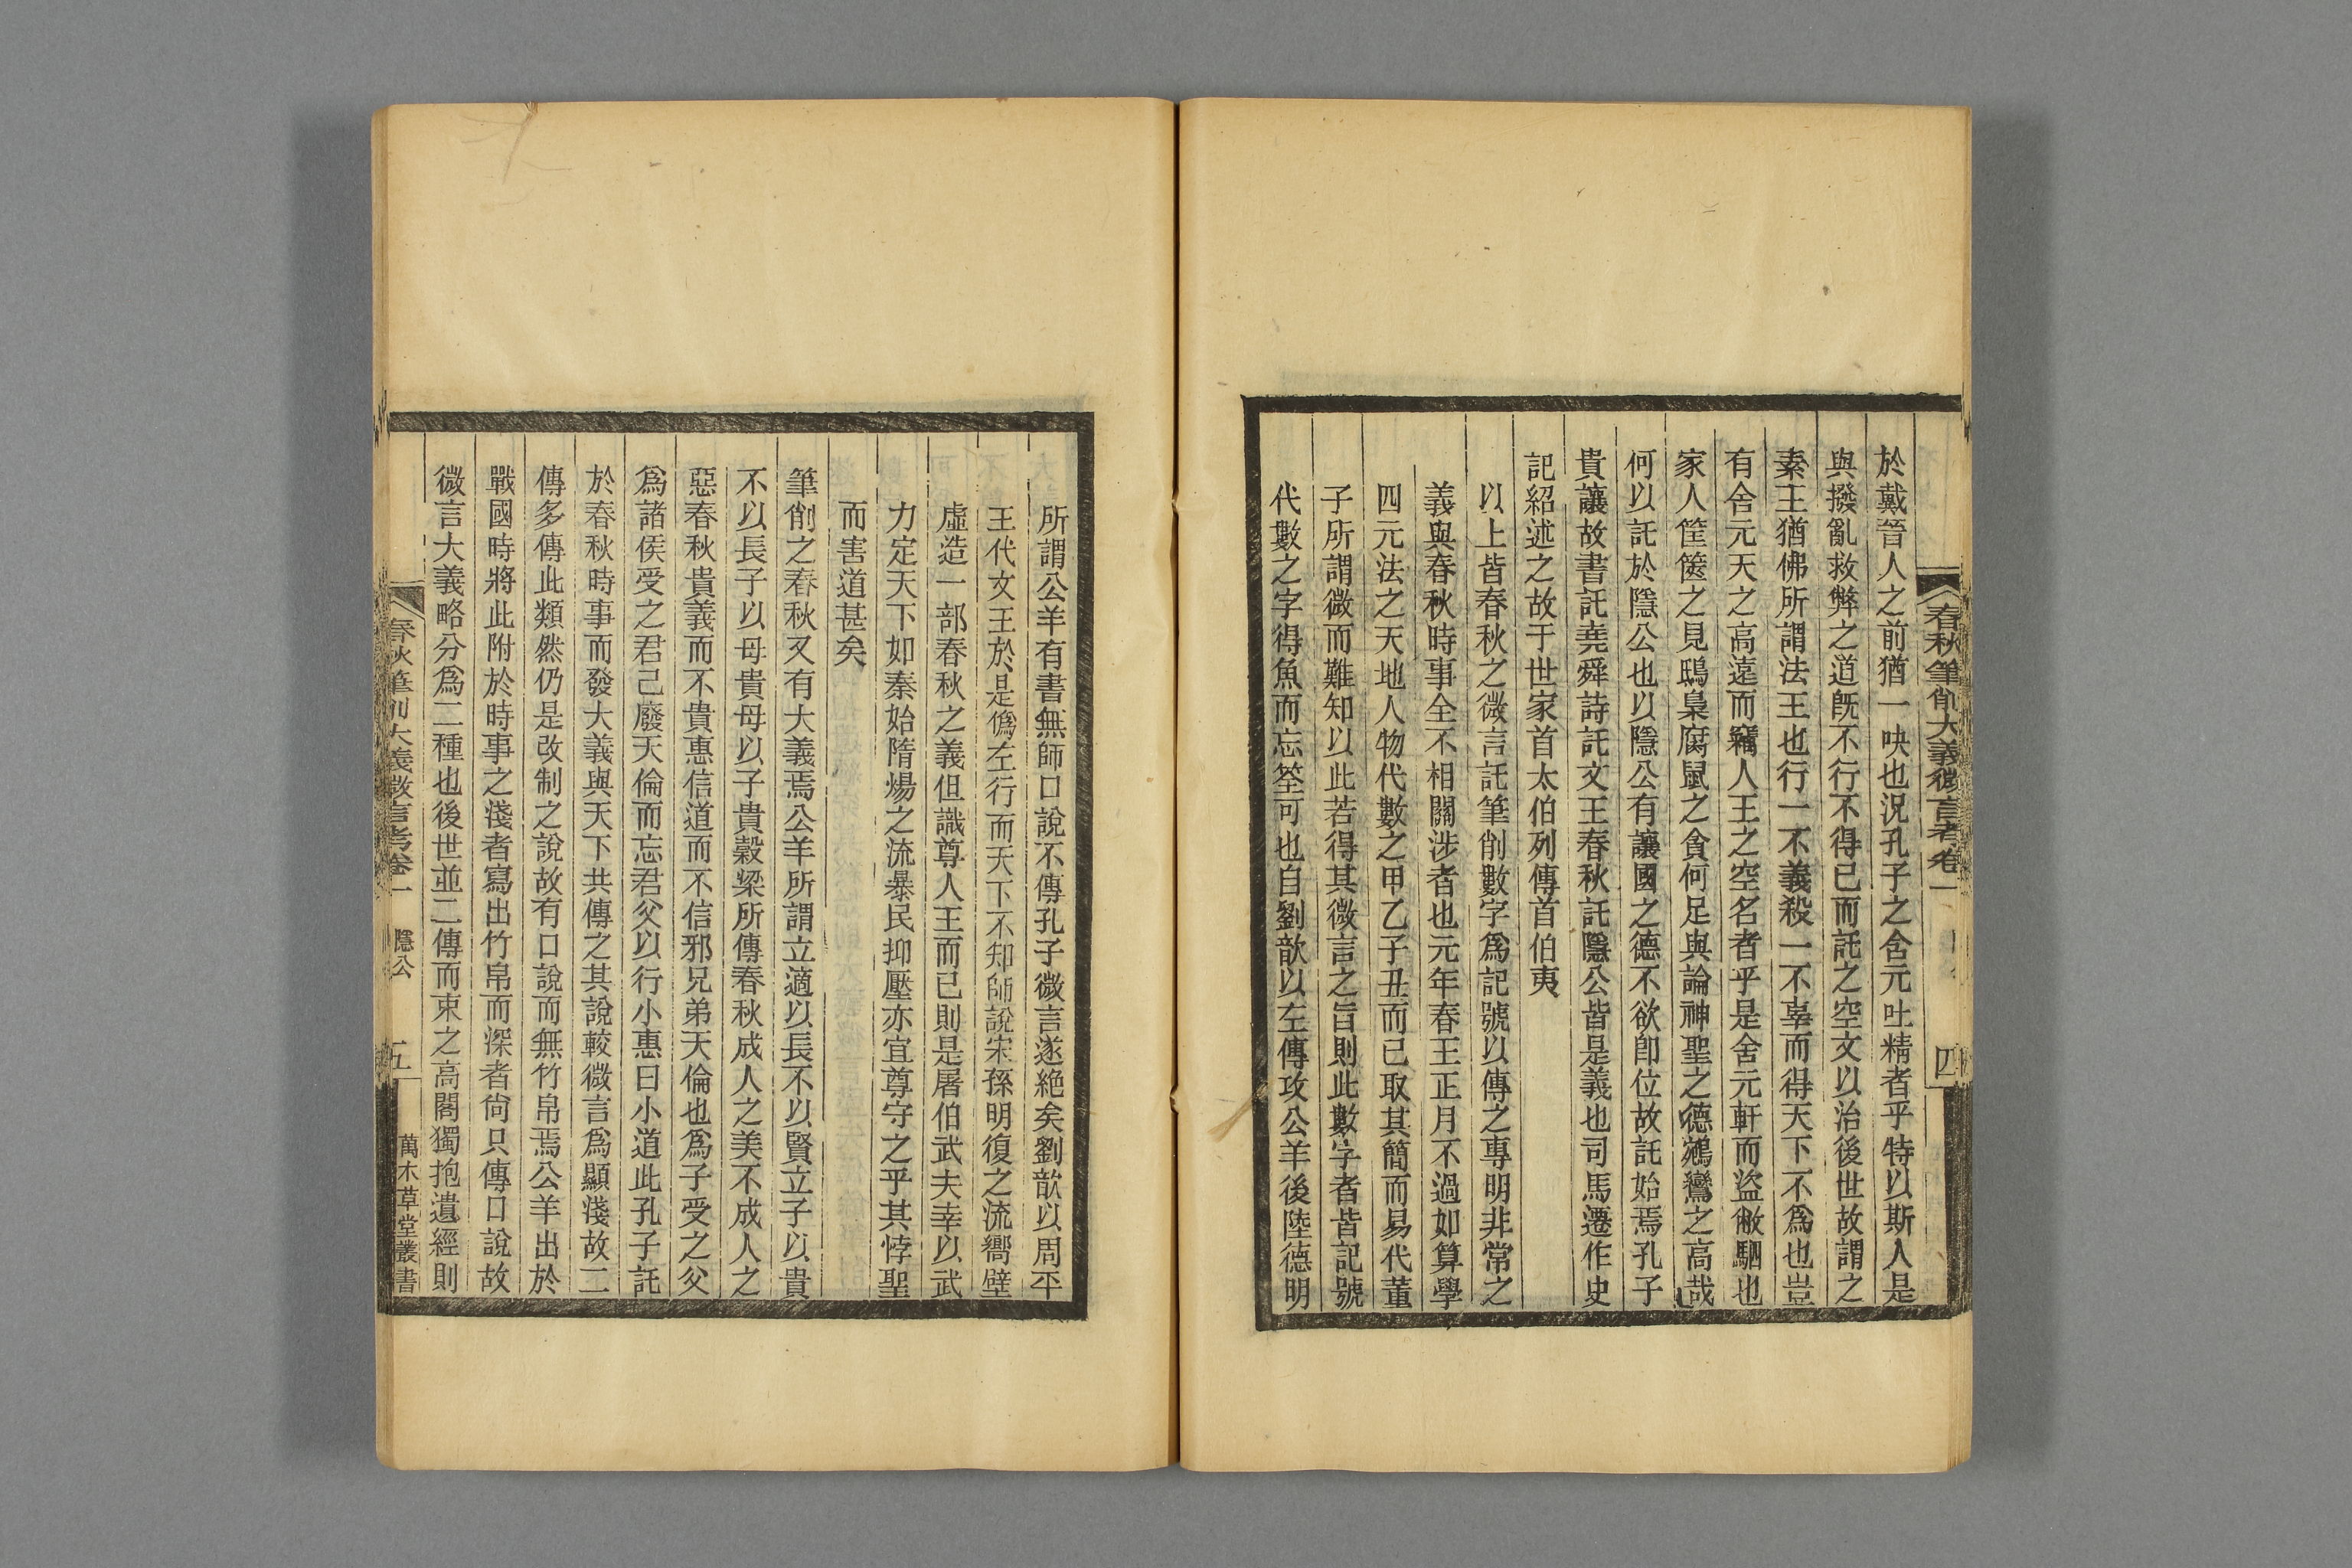 春秋筆削大義微言考卷一
四
於戴晉人之前猶一吷也況孔子之舍元吐精者乎特以斯人是
與撥亂救弊之道旣不行不得已而託之空文以治後世故謂之
素王猶佛所謂法王也行一不義殺一不辜而得天下不爲也豈
有舍元天之高遠而竊人王之空名者乎是舍元軒而盜敝駟也
家人筐篋之見鴟梟腐鼠之貪何足與論神聖之德鵷鸞之高哉
何以託於隱公也以隱公有讓國之德不欲卽位故託始焉孔子
貴讓故書託堯舜詩託文王春秋託隱公皆是義也司馬遷作史
記紹述之故于世家首太伯列傳首伯夷
以上皆春秋之微言託筆削數字爲記號以傳之專明非常之
義與春秋時事全不相關涉者也元年春王正月不過如算學
四元法之天地人物代數之甲乙子丑而已取其簡而易代董
子所謂微而難知以此若得其微言之旨則此數字者皆記號
代數之字得魚而忘筌可也自劉歆以左傳攻公羊後陸德明
所謂公羊有書無師口說不傳孔子微言遂絶矣劉歆以周平
王代文王於是僞左行而天下不知師說宋孫明復之流嚮壁
虛造一部春秋之義但識尊人王而已則是屠伯武夫幸以武
力定天下如秦始隋煬之流暴民抑壓亦宜尊守之乎其悖聖
而害道甚矣
筆削之春秋又有大義焉公羊所謂立適以長不以賢立子以貴
不以長子以母貴母以子貴穀梁所傳春秋成人之美不成人之
惡春秋貴義而不貴惠信道而不信邪兄弟天倫也爲子受之父
爲諸侯受之君己廢天倫而忘君父以行小惠曰小道此孔子託
於春秋時事而發大義與天下共傳之其說較微言爲顯淺故二
傳多傳此類然仍是改制之說故有口說而無竹帛焉公羊出於
戰國時將此附於時事之淺者寫出竹帛而深者尙只傳口說故
微言大義略分爲二種也後世並二傳而束之高閣獨抱遺經則
春秋筆削大義微言考卷一 隱公
五
萬木草堂叢書